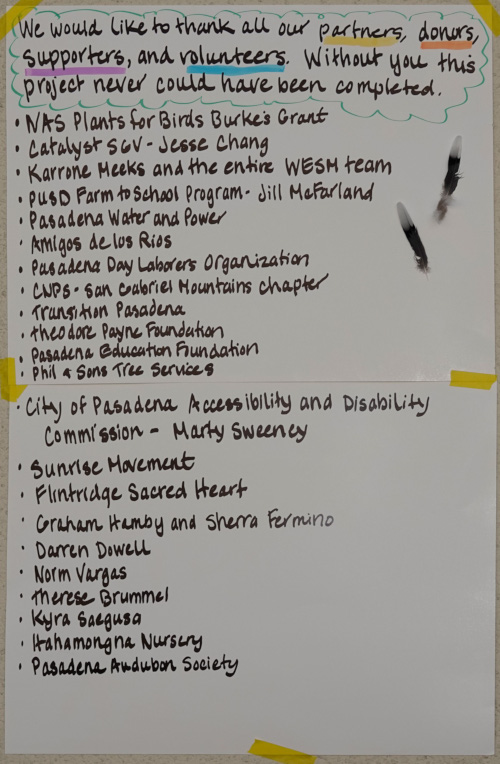 We would like to thank all our partners, donors,
supporters, and volunteers. Without you this
project never could have been completed.
• NAS Plants for Birds Burke's Grant
• Catalyst SGV - Jesse Chang
• Karrone Meeks and the entire WESM team
• PUSD Farm to School Program - Jill McFarland
• Pasadena Water and Power
• Amigos de los Rios
• Pasadena Day Laborers Organization
• CNPS - San Gabriel Mountains Chapter
• Transition Pasadena
• Theodore Payne Foundation
• Pasadena Education Foundation
• Phil & Sons Tree Services
• City of Pasadena Accessibility and Disability
Commission - Marty Sweeney
• Sunrise Movement
• Flintridge Sacred Heart
• Graham Hamby and Sherra Fermino
• Darren Dowell
• Norm Vargas
• Therese Brummel
• Kyra Saegusa
• Hahamongna Nursery
• Pasadena Audubon Society